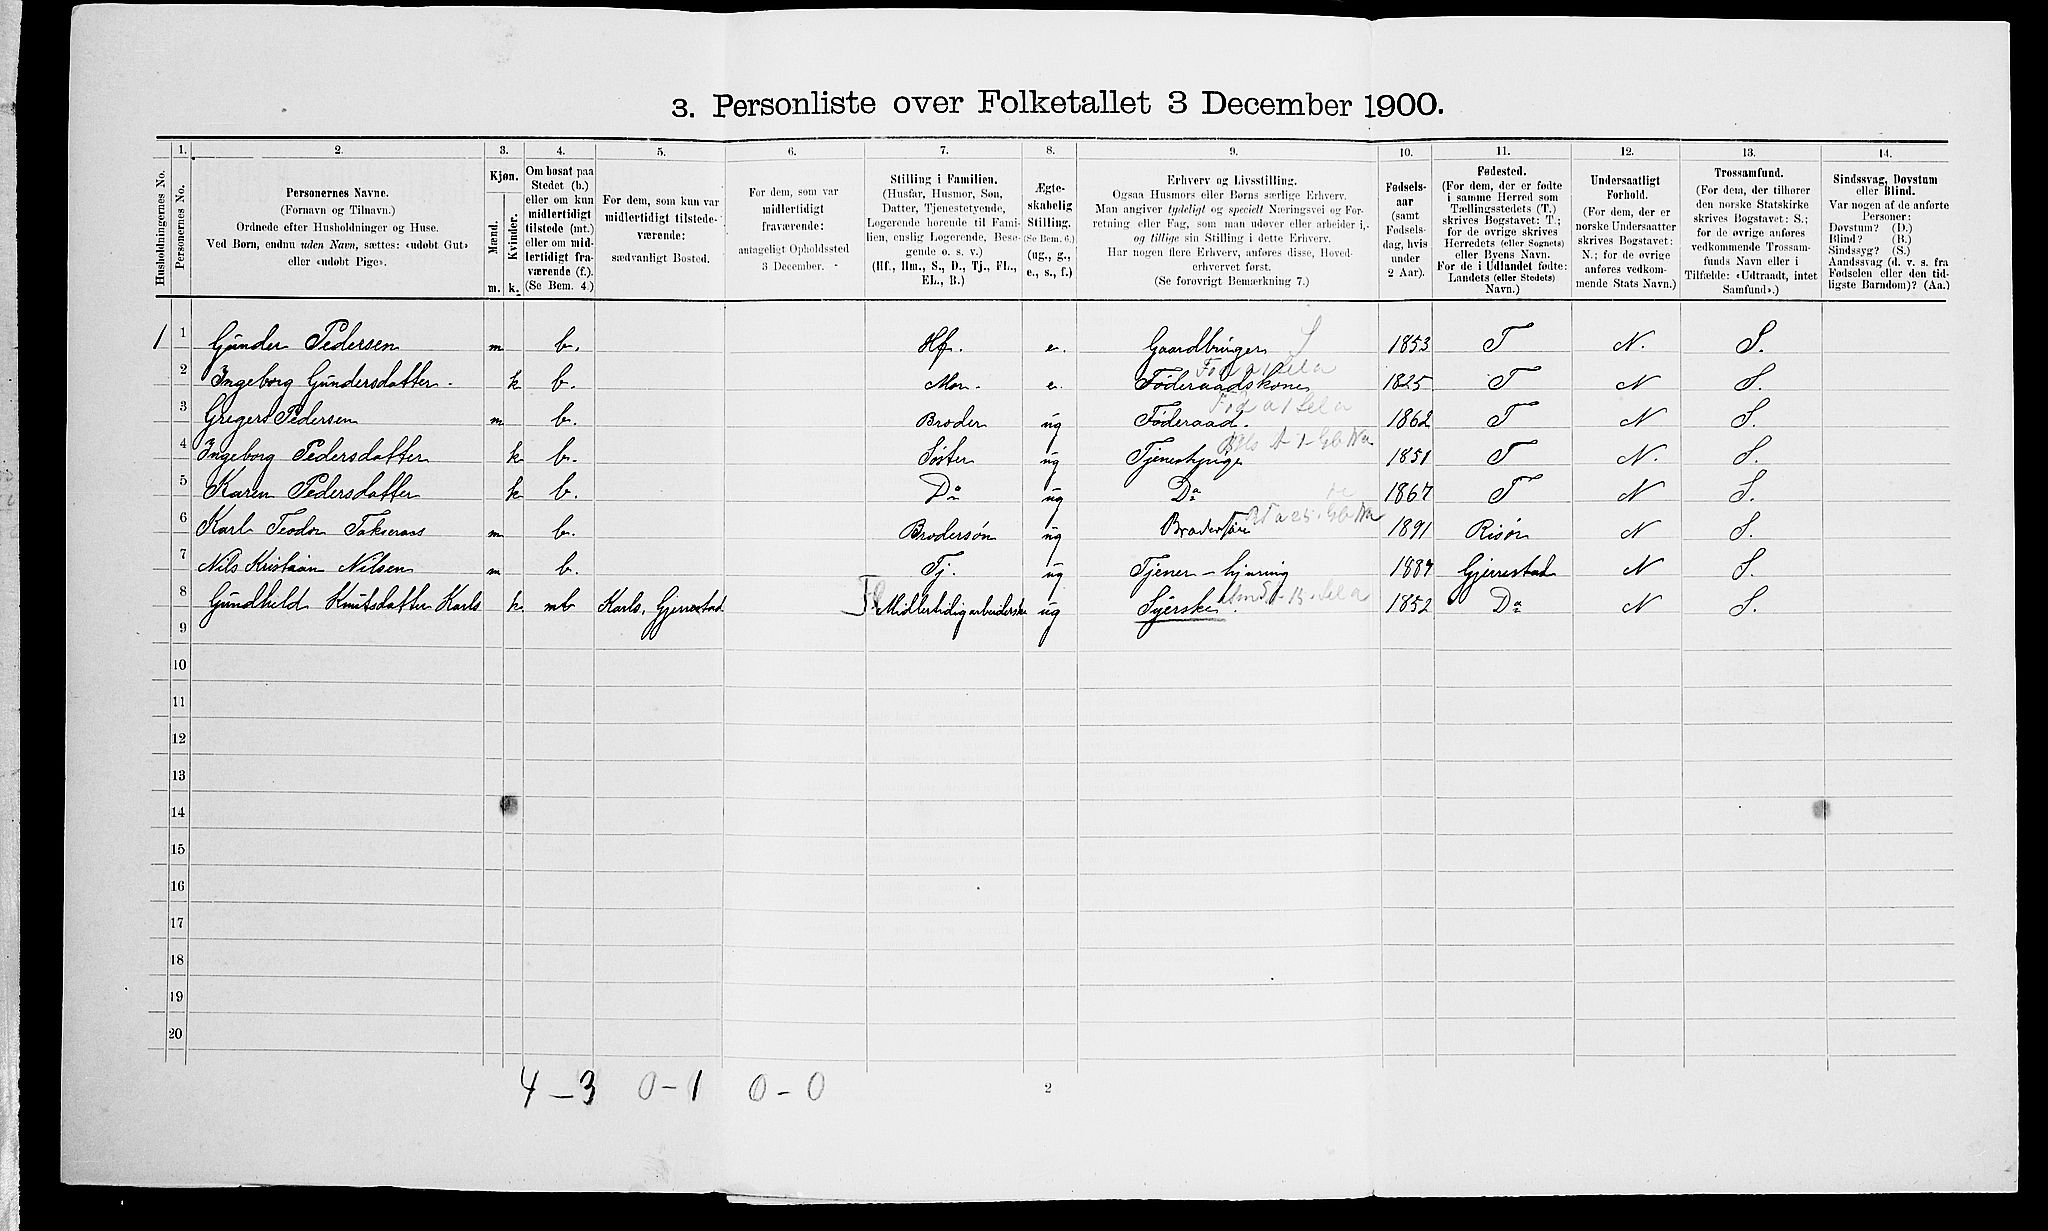 3. Personliste over Folketallet 3 December 1900.
Husholdningernes No.
1. Personernes No.
2. Personernes Navne.
(Fornavn og Tilnavn.)
Ordnede efter Husholdninger og Huse.
Ved Børn, endnu uden Navn, sættes: «udøbt Gut»
eller «udøbt Pige».
3. Kjøn.
Mænd. m.
Kvinder. k.
4. Om bosat paa
Stedet (b.)
eller om kun
midlertidigt
tilstede (mt.)
eller om mid-
lertidigt fra-
værende (f.).
(Se Bem. 4.)
5. For dem, som kun var
midlertidigt tilstede-
værende:
sædvanligt Bosted.
6. For dem, som var
midlertidigt
fraværende:
antageligt Opholdssted
3 December.
7. Stilling i Familien.
(Husfar, Husmor, Søn,
Datter, Tjenestetyende,
Logerende hørende til Fami-
lien, enslig Logerende, Besø-
gende o. s. v.)
(Hf., Hm., S., D., Tj., FL.,
EL., B.)
8. Ægte-
skabelig
Stilling.
(Se Bem. 6.)
(ug., g.,
e., s., f.)
9. Erhverv og Livsstilling.
Ogsaa Husmors eller Børns særlige Erhverv.
Man angiver tydeligt og specielt Næringsvei og For-
retning eller Fag, som man udøver eller arbeider i,
og tillige sin Stilling i dette Erhverv.
Har nogen flere Erhverv, anføres disse, Hoved-
erhvervet først.
(Se forøvrigt Bemærkning 7.)
10. Fødsels-
aar
(samt
Fødsels-
dag, hvis
under
2 Aar).
11. Fødested.
(For dem, der er fødte
i samme Herred som
Tællingsstedets (T.)
skrives Bogstavet: T.;
for de øvrige skrives
Herredets (eller Sognets)
eller Byens Navn.
For de i Udlandet fødte:
Landets (eller Stedets)
Navn.)
12. Undersaatligt
Forhold.
(For dem, der er
norske Undersaatter
skrives Bogstavet:
N.; for de øvrige
anføres vedkom-
mende Stats Navn.)
13. Trossamfund.
(For dem, der tilhører
den norske Statskirke
skrives Bogstavet: S.;
for de øvrige anføres
vedkommende Trossam-
funds Navn eller i
Tilfælde: «Udtraadt, intet
Samfund».)
14. Sindssvag, Døvstum
eller Blind.
Var nogen af de anførte
Personer:
Døvstum? (D.)
Blind? (B.)
Sindssyg? (S.)
Aandssvag (d. v. s. fra
Fødselen eller den tid-
ligste Barndom)? (Aa.)
1 1 Gunder Pedersen m b. Hf. e. Gaardbruger S 1853 T N. S.
2 Ingeborg Gundersdatter. k b. Mor. e. Føderaadskone 1825 T N S.
3 Gregers Pedersen m b. Broder ug Føderaad. 1862 T N S.
4 Ingeborg Pedersdatter k b. Søster ug Tjenestepige 1851 T N. S.
5 Karen Pedersdatter k b. Do ug Do 1867 T N S.
6 Karl Teodor m b. Brodersøn ug Brodersøn 1891 Risør N S.
7 Nils Kristian Nilsen m b. Tj. ug Tjener 1884 Gjerrestad N S.
8 Gundhild Knutsdatter Karls k mt Karls, Gjerrestad FL Midlertidig arbeiderske ug Syerske. 1852 Do N S.
9
10
11
12
13
14
15
16
17
18
19
20
4-3 0-1 0-0
2